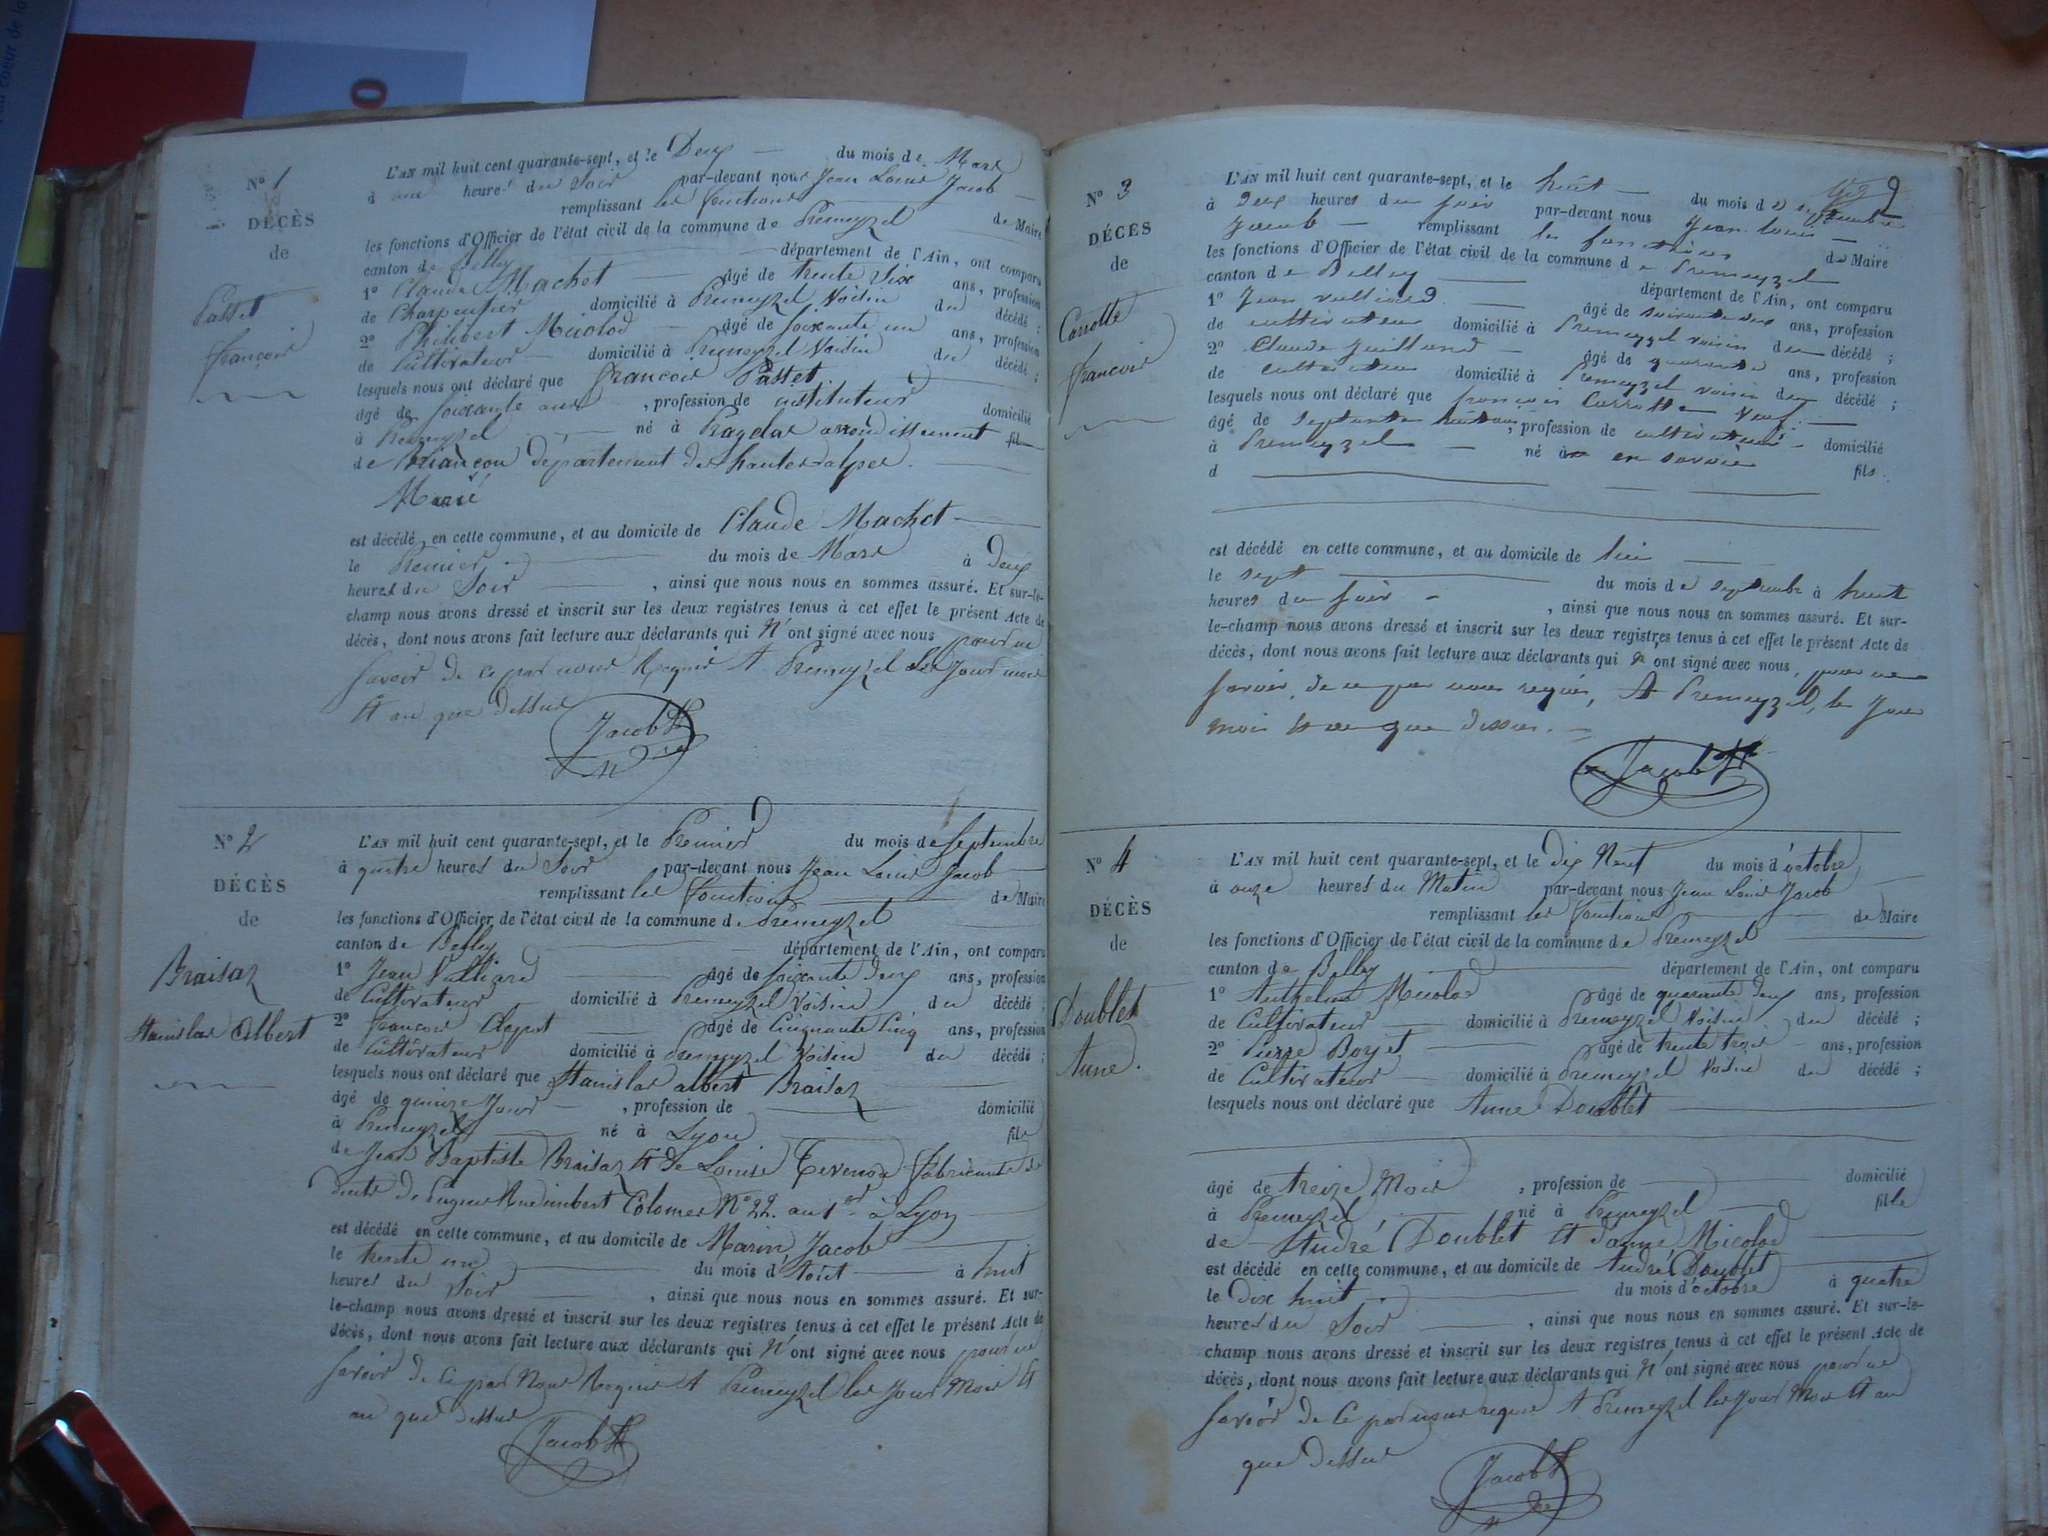 au coeur de la
O
N° 1
DÉCÈS
de
Passet
françois
L'AN mil huit cent quarante-sept, et le Deux du mois de Mars
à une heures du Soir par-devant nous Jean Louis Jacob
remplissant les fonctions de Maire
les fonctions d'Officier de l'état civil de la commune de Premeyzel
canton de Belley département de l'Ain, ont comparu
1° Claude Machet âgé de trente Six ans, profession
de Charpentier domicilié à Premeyzel Voisin du décédé ;
2° Philibert Micolod âgé de soixante un ans, profession
de Cultivateur domicilié à Premeyzel Voisin du décédé ;
lesquels nous ont déclaré que françois Passet
âgé de soixante ans , profession de instituteur domicilié
à Premeyzel né à arrondissement fils
de Briançon département des hautes alpes.
Marié
est décédé en cette commune, et au domicile de Claude Machet
le Premier du mois de Mars à Deux
heures du Soir , ainsi que nous nous en sommes assuré. Et sur-le-
champ nous avons dressé et inscrit sur les deux registres tenus à cet effet le présent Acte de
décès, dont nous avons fait lecture aux déclarants qui N'ont signé avec nous pour ne
savoir de ce par nous Requis A Premeyzel les Jour mois
Et an que dessus
Jacob
N° 2
DÉCÈS
de
Braisaz
Stanislas Albert
L'AN mil huit cent quarante-sept, et le Premier du mois de Septembre
à quatre heures du Soir par-devant nous Jean Louis Jacob
remplissant les fonctions de Maire
les fonctions d'Officier de l'état civil de la commune de Premeyzel
canton de Belley département de l'Ain, ont comparu
1° Jean Vulliard âgé de soixante deux ans, profession
de Cultivateur domicilié à Premeyzel Voisin du décédé ;
2° françois âgé de Cinquante Cinq ans, profession
de Cultivateur domicilié à Premeyzel Voisin du décédé ;
lesquels nous ont déclaré que Stanislas albert Braisaz
âgé de quinze Jours , profession de domicilié
à Premeyzel né à Lyon fils
de Jean Baptiste Braisaz Et de Louise fabricants de
de Eugene Colomes N° 22. au 1er à Lyon
est décédé en cette commune, et au domicile de Marin Jacob
le trente un du mois d'Août à huit
heures du Soir , ainsi que nous nous en sommes assuré. Et sur-
le-champ nous avons dressé et inscrit sur les deux registres tenus à cet effet le présent Acte de
décès, dont nous avons fait lecture aux déclarants qui N'ont signé avec nous pour ne
savoir de ce par Nous Requis A Premeyzel les Jour Mois Et
an que dessus
Jacob
9
N° 3
DÉCÈS
de
Carrotte
françois
L'AN mil huit cent quarante-sept, et le huit du mois de septembre
à Deux heures du soir par-devant nous Jean louis
Jacob remplissant les fonctions de Maire
les fonctions d'Officier de l'état civil de la commune de Premeyzel
canton de Belley département de l'Ain, ont comparu
1° Jean vulliard âgé de soixante deux ans, profession
de cultivateur domicilié à Premeyzel voisin du décédé ;
2° Claude Juilland âgé de quarante ans, profession
de cultivateur domicilié à Premeyzel voisin du décédé ;
lesquels nous ont déclaré que françois Carrotte veuf
âgé de septante huit ans , profession de cultivateur domicilié
à Premeyzel né en savoie
d fils
est décédé en cette commune, et au domicile de lui
le sept du mois de septembre à huit
heures du soir , ainsi que nous nous en sommes assuré. Et sur-
le-champ nous avons dressé et inscrit sur les deux registres tenus à cet effet le présent Acte de
décès, dont nous avons fait lecture aux déclarants qui n'ont signé avec nous, pour ne
savoir, de ce par nous requis, A Premeyzel, les Jour
mois Et an que dessus.
Jacob
N° 4
DÉCÈS
de
Doublet
Anne.
L'AN mil huit cent quarante-sept, et le dix Neuf du mois d'octobre
à onze heures du Matin par-devant nous Jean Louis Jacob
remplissant les fonctions de Maire
les fonctions d'Officier de l'état civil de la commune de Premeyzel
canton de Belley département de l'Ain, ont comparu
1° Anthelme Micolod âgé de quarante deux ans, profession
de Cultivateur domicilié à Premeyzel Voisin du décédé ;
2° Pierre Borjet âgé de trente trois ans, profession
de Cultivateur domicilié à Premeyzel Voisin du décédé ;
lesquels nous ont déclaré que Anne Doublet
âgé de treize Mois , profession de domicilié
à Premeyzel né à Premeyzel fille
de André Doublet Et d'anne Micolod
est décédé en cette commune, et au domicile de André Doublet
le Dix huit du mois d'octobre à quatre
heures du Soir , ainsi que nous nous en sommes assuré. Et sur-le-
champ nous avons dressé et inscrit sur les deux registres tenus à cet effet le présent Acte de
décès, dont nous avons fait lecture aux déclarants qui N'ont signé avec nous pour ne
savoir de Ce par nous requis A Premeyzel les Jour Mois Et an
que dessus
Jacob